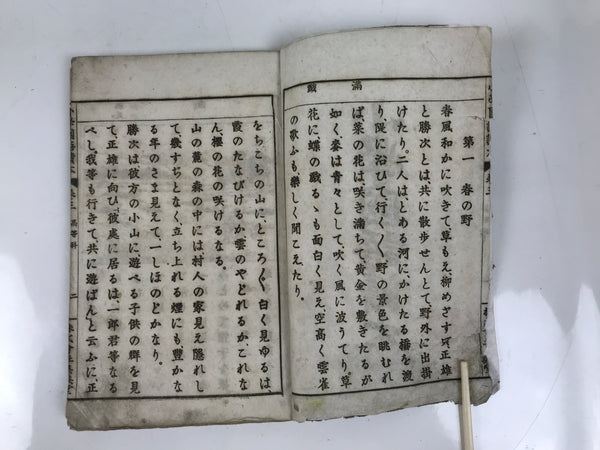 滿
第一 春の野
春風和かに吹きて、草もえ、柳めざす。正雄
と勝次とは共に散歩せんとて、野外に出掛
けたり。二人は、とある河に、かけたる橋を渡
り、隄に沿ひて行く〳〵野の景色を眺むれ
ば、菜の花は咲き滿ちて、黄金を敷きたるが
如く、麥は青々として、吹く風に波うてり。草
花に、蝶の戯るゝも面白く見え、空高く雲雀
の歌ふも、樂しく聞こえたり。
をちこちの山にところ〴〵白く見ゆるは
霞のたなびけるか、雲のやどれるか、これな
ん、櫻の花の咲けるなる。
山の麓の森の中には村人の家見え隱れし
て、幾すぢとなく、立ち上れる煙にも、豊かな
る年のさま見えて、一しほのどかなり。
勝次は彼方の小山に遊べる子供の群を見
て、正雄に向ひ、彼處に居るは一郎君等なる
べし、我等も行きて共に遊ばんと云ふに、正
卷三 高等科 二